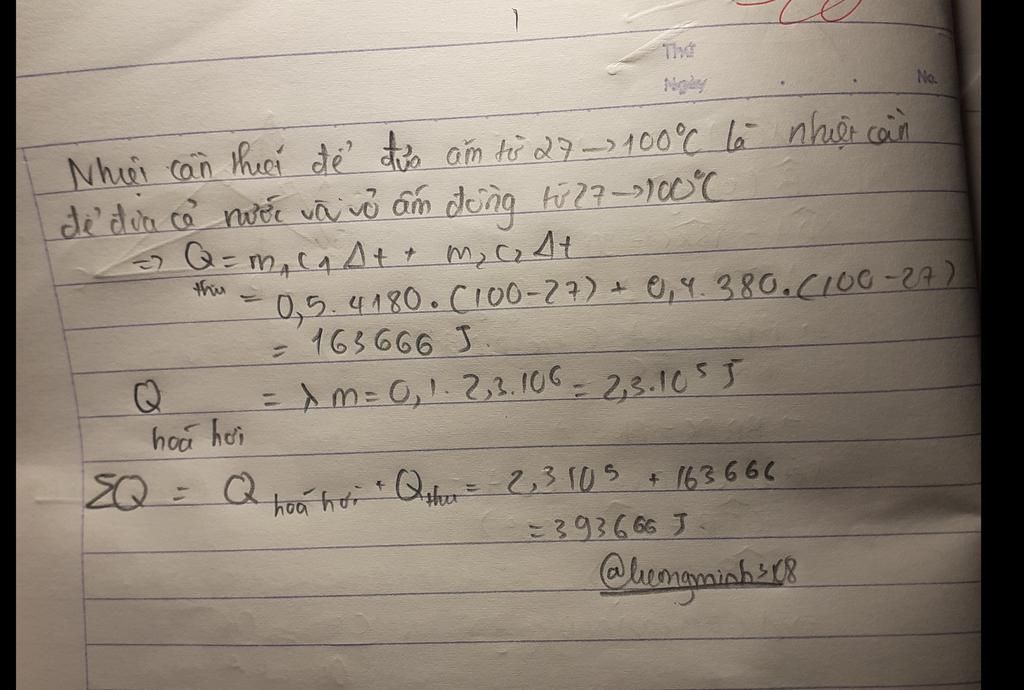 1
Thứ
Ngày . . No.
Nhiệt cần thiết để đưa ấm từ 27 → 100°C là nhiệt cần
để đưa cả nước và vỏ ấm đồng từ 27 → 100°C
⇒ Q thu = m₁c₁Δt + m₂c₂Δt
= 0,5.4180.(100-27) + 0,4.380.(100-27)
= 163666 J.
Q hoá hơi = λm = 0,1.2,3.10⁶ = 2,3.10⁵ J
ΣQ = Q hoá hơi + Q thu = 2,3 10⁵ + 163666
= 393666 J.